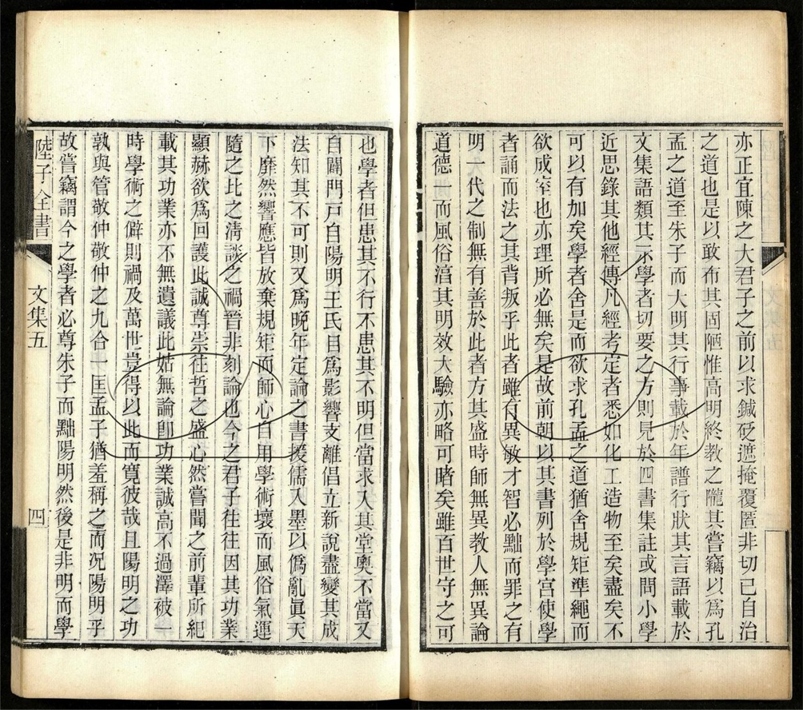 亦正宜陳之大君子之前以求鍼砭遮掩覆匿非切己自治
之道也是以敢布其固陋惟高明終教之隴其嘗竊以爲孔
孟之道至朱子而大明其行事載於年譜行狀其言語載於
文集語類其示學者切要之方則見於四書集註或問小學
近思錄其他經傳凡經考定者悉如化工造物至矣盡矣不
可以有加矣學者舍是而欲求孔孟之道猶舍規矩準繩而
欲成室也亦理所必無矣是故前朝以其書列於學宮使學
者誦而法之其背叛乎此者雖有異敏才智必黜而罪之有
明一代之制無有善於此者方其盛時師無異教人無異論
道德一而風俗㴠其明效大驗亦略可睹矣雖百世守之可
也學者但患其不行不患其不明但當求入其堂奧不當又
自闢門戶自陽明王氏目爲影響支離倡立新說盡變其成
法知其不可則又爲晚年定論之書援儒入墨以僞亂眞天
下靡然響應皆放棄規矩而師心自用學術壞而風俗氣運
隨之比之清談之禍晉非刻論也今之君子往往因其功業
顯赫欲爲回護此誠尊崇往哲之盛心然嘗聞之前輩所紀
載其功業亦不無遺議此姑無論卽功業誠高不過澤被一
時學術之僻則禍及萬世豈得以此而寬彼哉且陽明之功
孰與管敬仲敬仲之九合一匡孟子猶羞稱之而況陽明乎
故嘗竊謂今之學者必尊朱子而黜陽明然後是非明而學
陸子全書
文集五
四